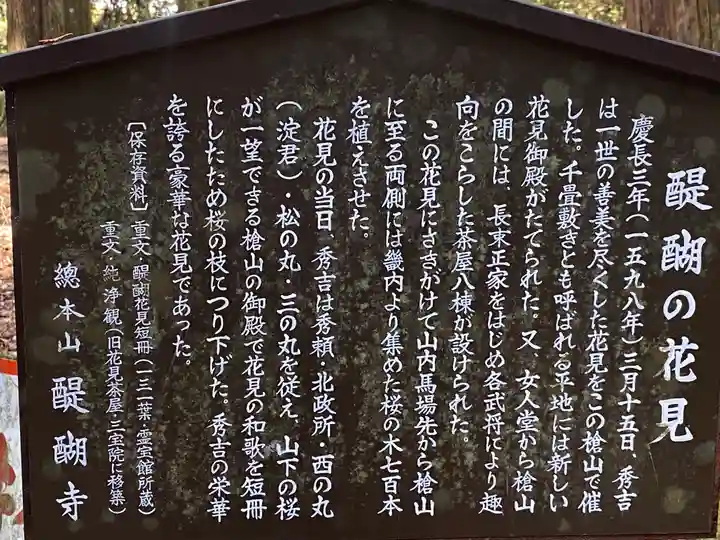 醍醐の花見
慶長三年(一五九八年)三月十五日、秀吉
は一世の善美を尽くした花見をこの槍山で催
した。千畳敷きとも呼ばれる平地には新しい
花見御殿がたてられた。又、女人堂から槍山
の間には、長束正家をはじめ各武将により趣
向をこらした茶屋八棟が設けられた。
この花見にさきがけて山内馬場先から槍山
に至る両側には畿内より集めた桜の木七百本
を植えさせた。
花見の当日、秀吉は秀頼・北政所・西の丸
(淀君)・松の丸・三の丸を従え、山下の桜
が一望できる槍山の御殿で花見の和歌を短冊
にしたため桜の枝につり下げた。秀吉の栄華
を誇る豪華な花見であった。
[保存資料] 重文・醍醐花見短冊(一三一葉・霊宝館所蔵)
重文・純浄観(旧花見茶屋 三宝院に移築)
總本山 醍醐寺